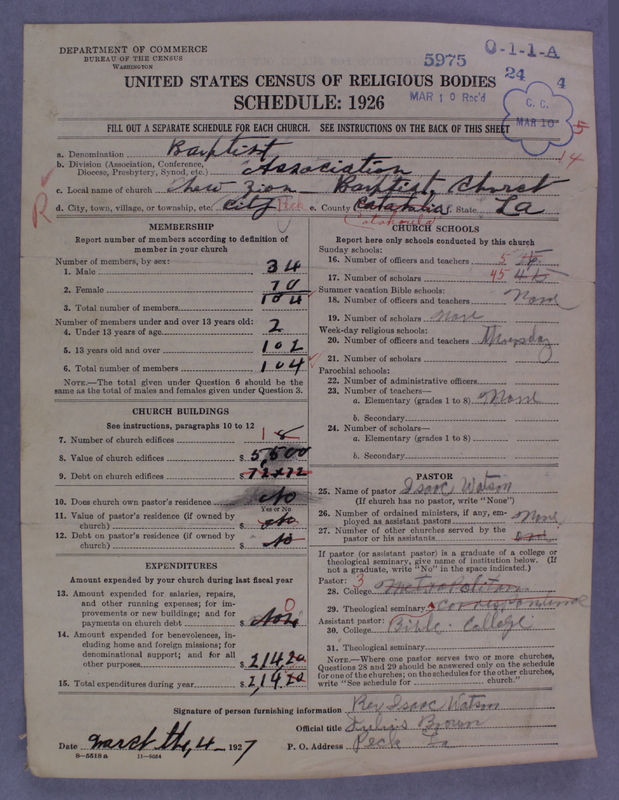 DEPARTMENT OF COMMERCE
BUREAU OF THE CENSUS
WASHINGTON
5975
O-1-1-A
24
4
UNITED STATES CENSUS OF RELIGIOUS BODIES
SCHEDULE: 1926
MAR 10 Rec'd
C. C.
MAR 10
5
FILL OUT A SEPARATE SCHEDULE FOR EACH CHURCH. SEE INSTRUCTIONS ON THE BACK OF THIS SHEET
14
a. Denomination Baptist
b. Division (Association, Conference, Diocese, Presbytery, Synod, etc.) Association
c. Local name of church Zion Baptist Church
R
d. City, town, village, or township, etc. City Peck e. County Catahoula f. State La
MEMBERSHIP
Report number of members according to definition of
member in your church
Number of members, by sex:
1. Male 34
2. Female 70
3. Total number of members 104
Number of members under and over 13 years old:
4. Under 13 years of age 2
5. 13 years old and over 102
6. Total number of members 104
NOTE.—The total given under Question 6 should be the
same as the total of males and females given under Question 3.
CHURCH BUILDINGS
See instructions, paragraphs 10 to 12
7. Number of church edifices 1
8. Value of church edifices $ 5,500
9. Debt on church edifices $
10. Does church own pastor's residence No
Yes or No
11. Value of pastor's residence (if owned by
church) $ No
12. Debt on pastor's residence (if owned by
church) $ No
EXPENDITURES
Amount expended by your church during last fiscal year
13. Amount expended for salaries, repairs,
and other running expenses; for im-
provements or new buildings; and for
payments on church debt $ None 0
14. Amount expended for benevolences, in-
cluding home and foreign missions; for
denominational support; and for all
other purposes $ 214.20
15. Total expenditures during year $ 214.20
CHURCH SCHOOLS
Report here only schools conducted by this church
Sunday schools:
16. Number of officers and teachers 5
17. Number of scholars 45
Summer vacation Bible schools:
18. Number of officers and teachers None
19. Number of scholars None
Week-day religious schools:
20. Number of officers and teachers Thursday
21. Number of scholars
Parochial schools:
22. Number of administrative officers
23. Number of teachers—
a. Elementary (grades 1 to 8) None
b. Secondary
24. Number of scholars—
a. Elementary (grades 1 to 8)
b. Secondary
PASTOR
25. Name of pastor Isaac Watson
(If church has no pastor, write "None")
26. Number of ordained ministers, if any, em-
ployed as assistant pastors None
27. Number of other churches served by the
pastor or his assistants
If pastor (or assistant pastor) is a graduate of a college or
theological seminary, give name of institution below. (If
not a graduate, write "No" in the space indicated.)
Pastor: 3
28. College Metropolitan
29. Theological seminary
Assistant pastor:
30. College Bible College
31. Theological seminary
NOTE.—Where one pastor serves two or more churches,
Questions 28 and 29 should be answered only on the schedule
for one of the churches; on the schedules for the other churches,
write "See schedule for church."
Signature of person furnishing information Rev Isaac Watson
Official title Julius Brown
Date March the, 4 - 1927 P. O. Address Peck La
8—5518 a 11—9054